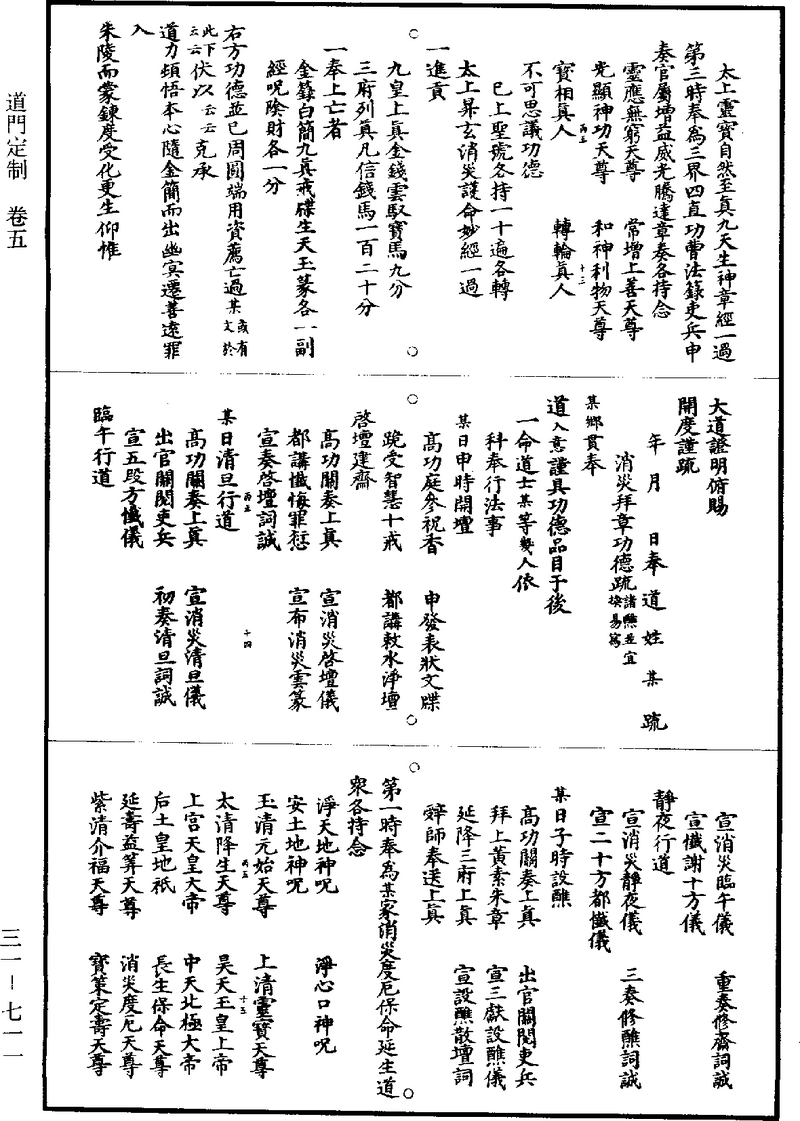 道門定制　卷五
三一－七一一
太上靈寶自然至真九天生神章經一過
第三時奉爲三界四直功曹法籙吏兵申
奏官屬增益威光騰達章奏各持念
靈應無窮天尊　常增上善天尊
光顯神功天尊　和神利物天尊
丙五　十三
寶相真人　轉輪真人
不可思議功德
已上聖號各持一十遍各轉
太上昇玄消災護命妙經一過
一進貢
九皇上真金錢雲馭寶馬九分
三府列真凡信錢馬一百二十分
一奉上亡者
金籙白簡九真戒牒生天玉篆各一副
經呪陰財各一分
右方功德並已周圓端用資薦亡過某或有文於
此下云云伏以云云克承
道力頓悟本心隨金簡而出幽冥遷善遠罪
入
朱陵而蒙鍊度受化更生仰惟
大道證明俯賜
開度謹疏
年　月　日奉　道　姓　某　疏
消災拜章功德疏諸醮並宜換易寫
某鄉貫奉
道入意謹具功德品目于後
一命道士某等幾人依
科奉行法事
某日申時開壇
高功庭參祝香　申發表狀文牒
跪受智慧十戒　都講敕水淨壇
啓壇建齋
高功關奏上真　宣消災啓壇儀
都講懺悔罪愆　宣布消災雲篆
宣奏啓壇詞誠
丙五　十四
某日清旦行道
高功關奏上真　宣消災清旦儀
出官關閱吏兵　初奏清旦詞誠
宣五段方懺儀
臨午行道
宣消災臨午儀　重奏修齋詞誠
宣懺謝十方儀
靜夜行道
宣消災靜夜儀　三奏修醮詞誠
宣二十方都懺儀
某日子時設醮
高功關奏上真　出官關閱吏兵
拜上黃素朱章　宣三獻設醮儀
延降三府上真　宣設醮散壇詞
辭師奉送上真
第一時奉爲某家消災度厄保命延生道
衆各持念
淨天地神呪　淨心口神呪
安土地神呪
玉清元始天尊　上清靈寶天尊
丙五　十五
太清降生天尊　昊天玉皇上帝
上宮天皇大帝　中天北極大帝
后土皇地祇　長生保命天尊
延壽益筭天尊　消災度厄天尊
紫清介福天尊　寶策定壽天尊